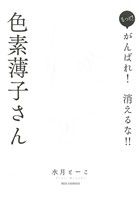 もっと!
がんばれ! 消えるな!!
色素薄子さん
水月とーこ
REX COMICS